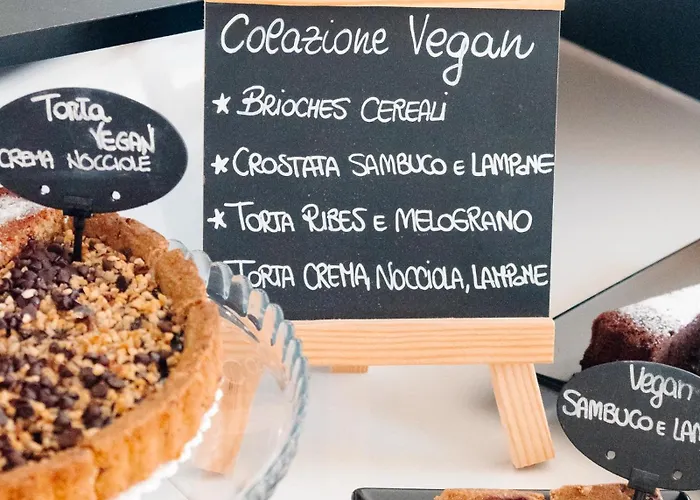 Colazione Vegan
★ BRIOCHES CEREALI
★ CROSTATA SAMBUCO E LAMPONE
★ TORTA RIBES E MELOGRANO
TORTA CREMA, NOCCIOLA, LAMPONE
TORTA
VEGAN
CREMA NOCCIOLE
Vegan
SAMBUCO E